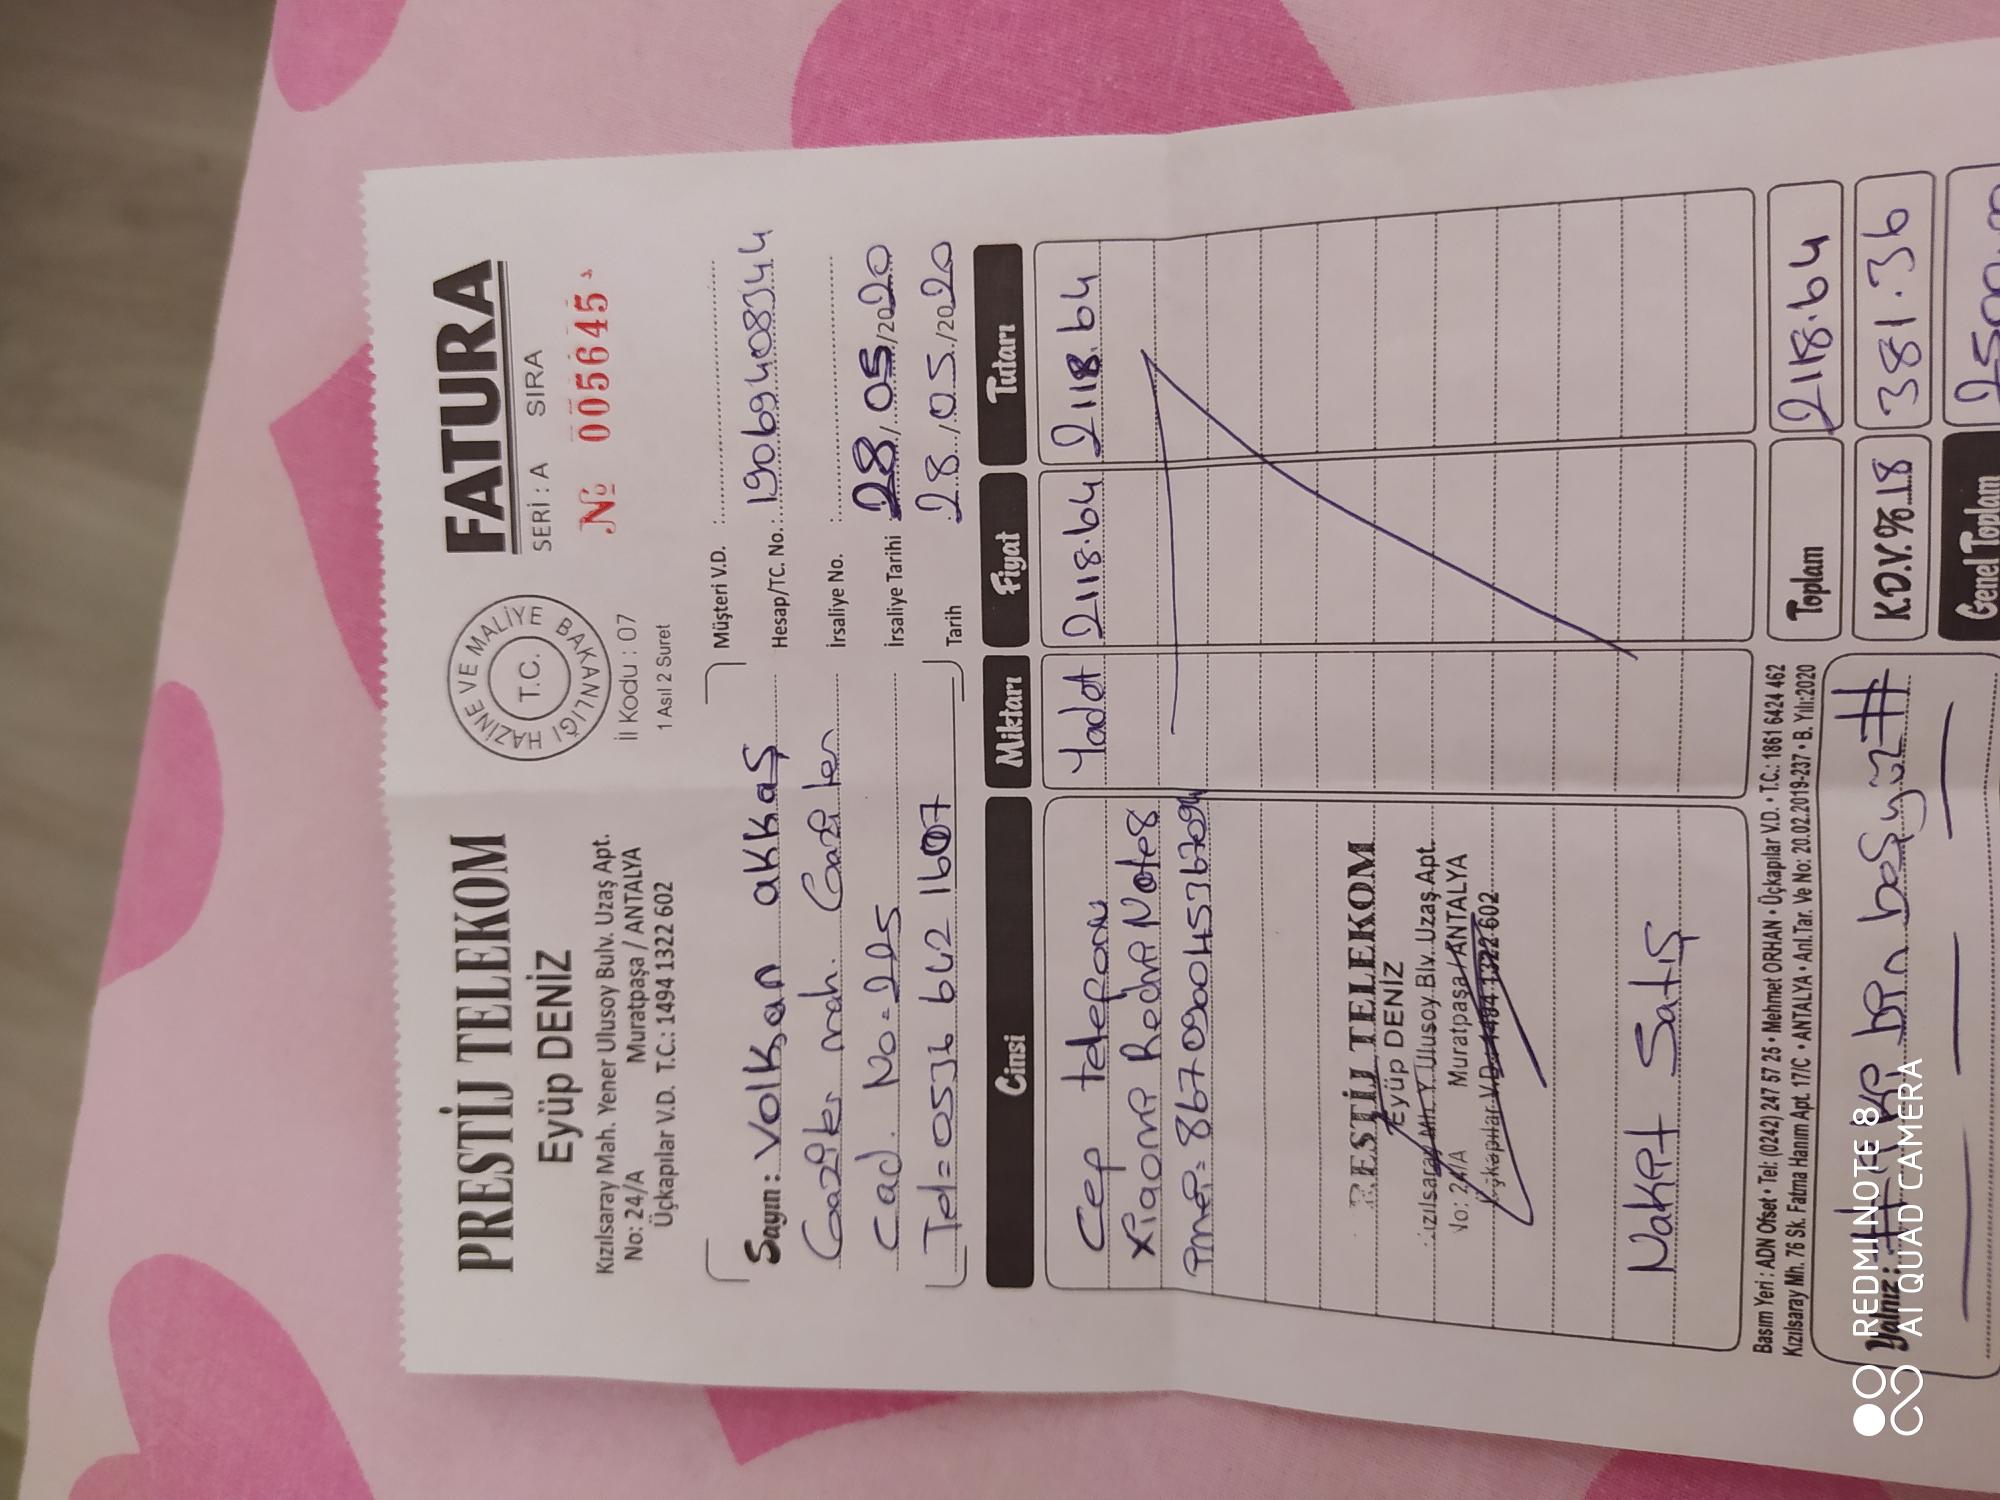 PRESTİJ TELEKOM
Eyüp DENİZ
Kızılsaray Mah. Yener Ulusoy Bulv. Uzaş Apt.
No: 24/A Muratpaşa / ANTALYA
Üçkapılar V.D. T.C.: 1494 1322 602
HAZİNE VE MALİYE BAKANLIĞI
T.C.
İl Kodu : 07
1 Asıl 2 Suret
FATURA
SERİ : A SIRA
№ 005645
Sayın : Volkan akkaş
Gaziler mah. Gaziler
cad. No=225
Tel=0536 642 1607
Müşteri V.D. :
Hesap/TC. No.: 19069408344
İrsaliye No. :
İrsaliye Tarihi 28/05/2020
Tarih : 28/05/2020
Cinsi Miktarı Fiyat Tutarı
Cep telefonu 1adet 2118.64 2118.64
Xiaomi Redmi Note8
İmei=
PRESTİJ TELEKOM
Eyüp DENİZ
Kızılsaray Mh. Y. Ulusoy Blv. Uzaş Apt.
No: 24/A Muratpaşa/ANTALYA
Üçkapılar V.D.: 1494 1322 602
Nakit Satış
Basım Yeri : ADN Ofset • Tel: (0242) 247 57 25 • Mehmet ORHAN • Üçkapılar V.D. • T.C.: 1861 6424 462
Kızılsaray Mh. 76 Sk. Fatma Hanım Apt. 17/C • ANTALYA • Anl.Tar. Ve No: 20.02.2019-237 • B. Yılı:2020
Yalnız : #İki bin beşyüz#
Toplam 2118.64
K.D.V.%.18 381.36
Genel Toplam 2500.00
REDMI NOTE 8
AI QUAD CAMERA